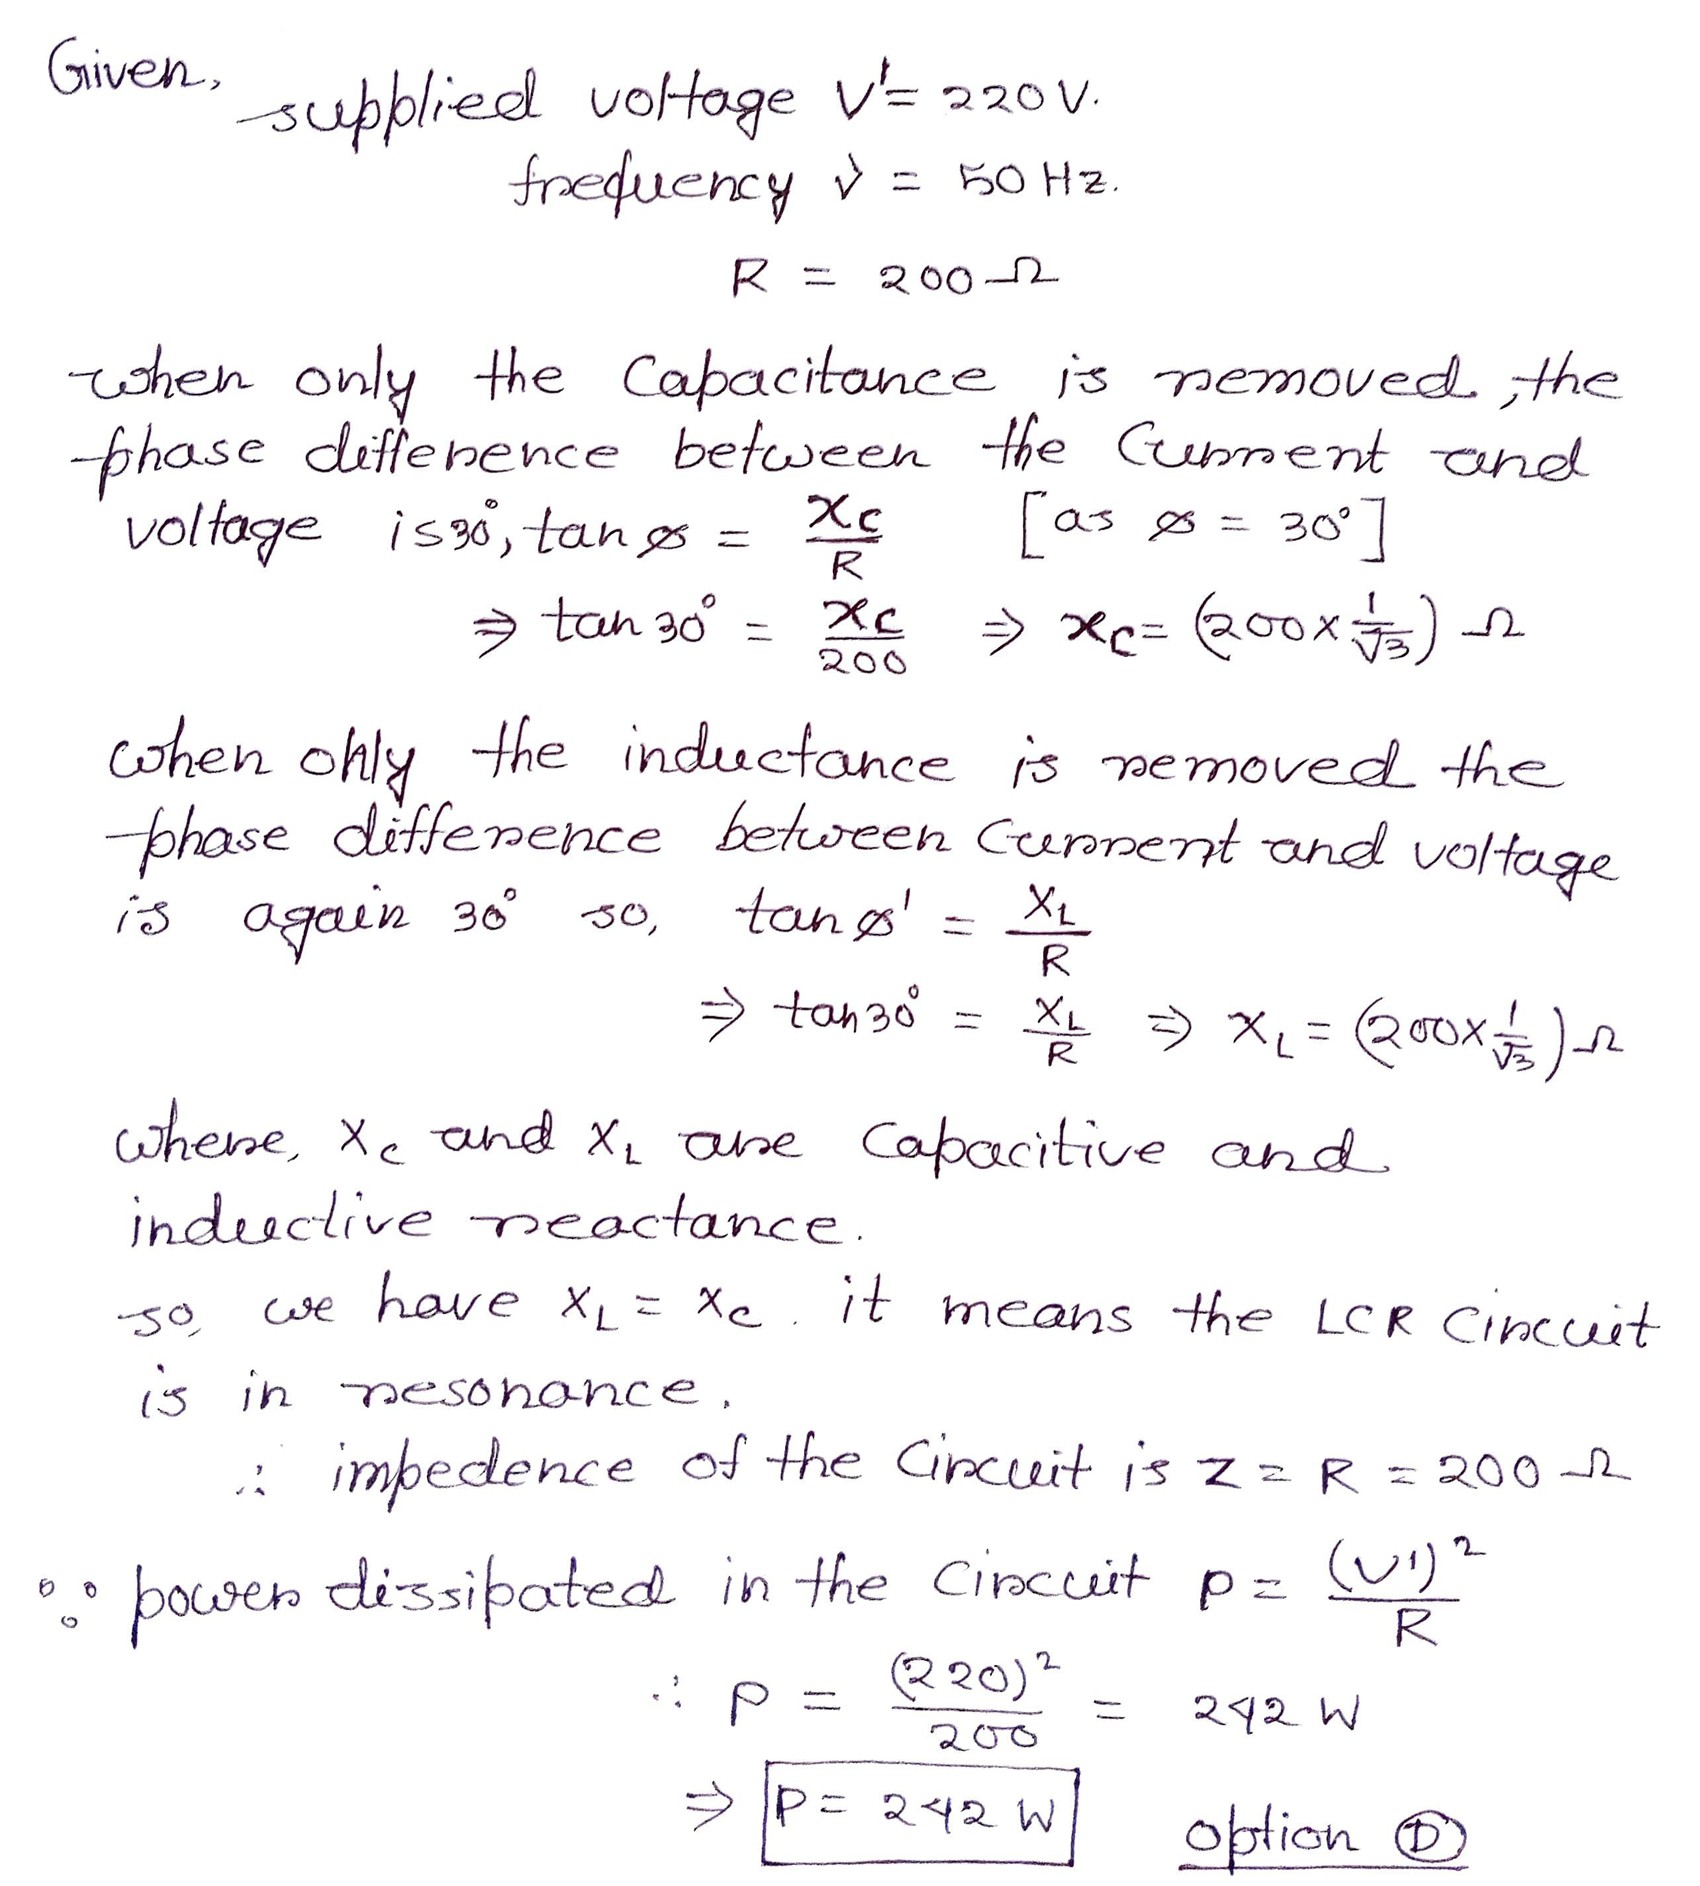 Given,
supplied voltage V' = 220 V.
frequency ν = 50 Hz.
R = 200 Ω
when only the Capacitance is removed, the
phase difference between the Current and
voltage is 30°, tan ø = X_C / R [as ø = 30°]
⇒ tan 30° = X_C / 200 ⇒ X_C = (200 × 1/√3) Ω
when only the inductance is removed the
phase difference between Current and voltage
is again 30° so, tan ø' = X_L / R
⇒ tan 30° = X_L / R ⇒ X_L = (200 × 1/√3) Ω
where, X_C and X_L are Capacitive and
inductive reactance.
so, we have X_L = X_C. it means the LCR Circuit
is in resonance.
∴ impedence of the Circuit is Z = R = 200 Ω
∵ power dissipated in the Circuit P = (V')² / R
∴ P = (220)² / 200 = 242 W
⇒ P = 242 W option Ⓓ